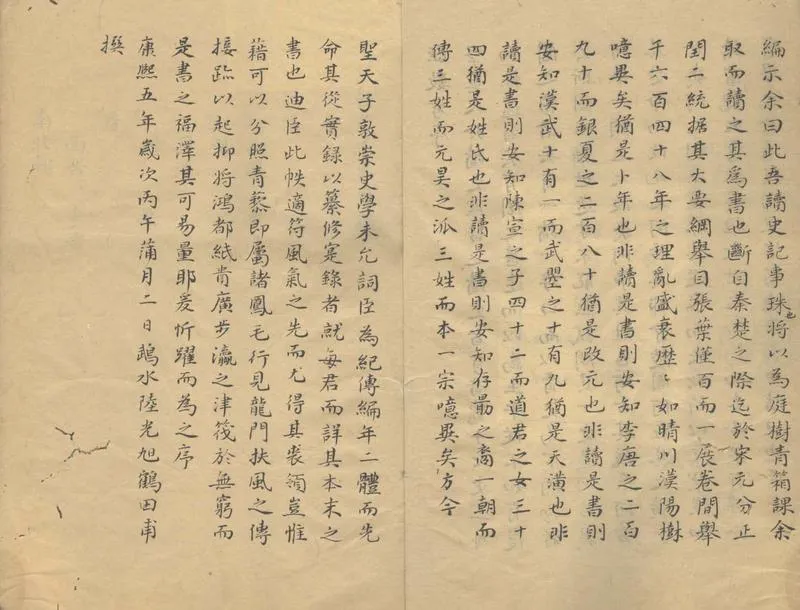 編示余曰此吾讀史記事珠也將以為庭樹青箱課余
取而讀之其為書也斷自秦楚之際迄於宋元分正
閏二統据其大要綱舉目張葉僅百而一展卷間舉
千六百四十八年之理亂盛衰歷歷如晴川漢陽樹
噫異矣猶是卜年也非讀是書則安知李唐之二百
九十而銀夏之二百八十猶是改元也非讀是書則
安知漢武十有一而武曌之十有九猶是天潢也非
讀是書則安知陳宣之子四十二而道君之女三十
四猶是姓氏也非讀是書則安知存勗之裔一朝而
傳三姓而元昊之派三姓而本一宗噫異矣方今
聖天子敦崇史學未允詞臣為紀傳編年二體而先
命其從實錄以纂修寔錄者就每君而詳其本末之
書也迪臣此帙適符風氣之先而尤得其裘領豈惟
藉可以分照青藜即屬諸鳳毛行見龍門扶風之傳
接踪以起抑將鴻都紙貴廣步瀛之津筏於無窮而
是書之福澤其可易量耶爰忻躍而為之序
康熙五年歲次丙午蒲月二日鵡水陸光旭鶴田甫
撰